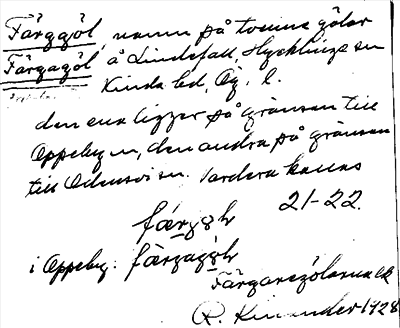 Färggöl, namn på tvenne gölar
Färgagöl å Lindefall, Hycklinge sn
Kinda hd, Ög. l.
den ena ligger på gränsen till
Oppeby sn, den andra på gränsen
till Odensvi sn. Vardera kallas
21-22.
færgöl
i Oppeby: færgagöl
Färgaregölarna ek
R. Kinander 1928